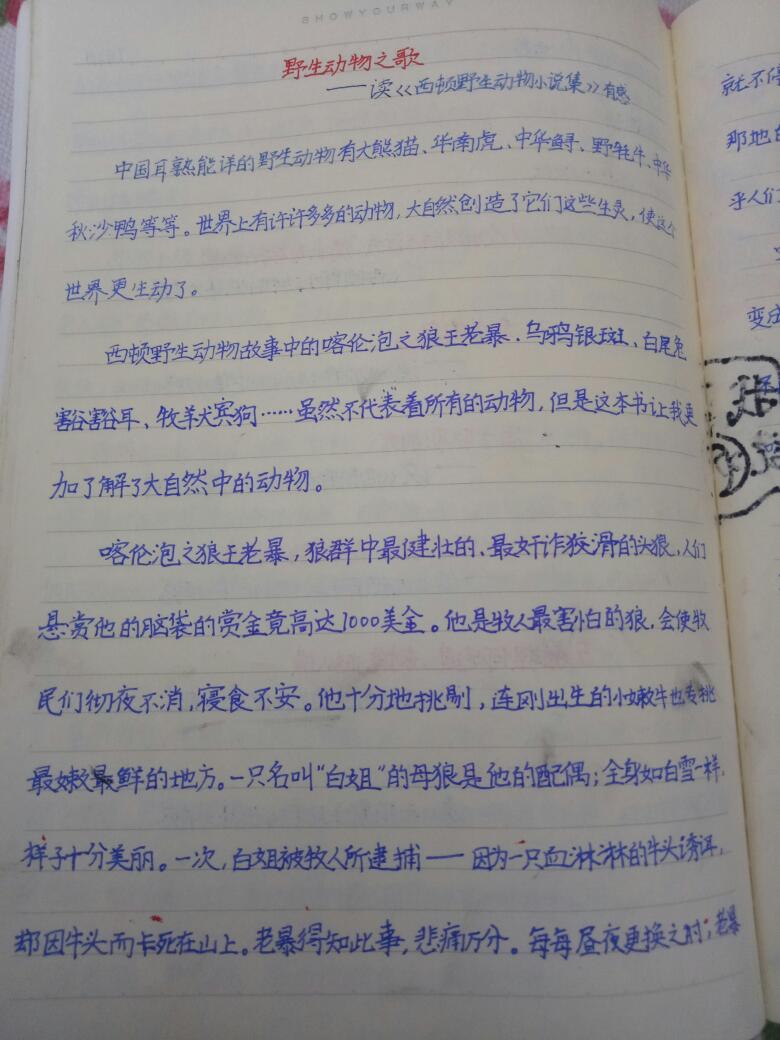 SHOWYOURWAY
野生动物之歌
——读《西顿野生动物小说集》有感
中国耳熟能详的野生动物有大熊猫、华南虎、中华鲟、野牦牛、中华
秋沙鸭等等。世界上有许许多多的动物,大自然创造了它们这些生灵,使这个
世界更生动了。
西顿野生动物故事中的喀伦泡之狼王老暴、乌鸦银斑、白尾兔
豁豁耳、牧羊犬宾狗……虽然不代表着所有的动物,但是这本书让我更
加了解了大自然中的动物。
喀伦泡之狼王老暴,狼群中最健壮的、最奸诈狡滑的头狼,人们
悬赏他的脑袋的赏金竟高达1000美金。他是牧人最害怕的狼,会使牧
民们彻夜不消,寝食不安。他十分地挑剔,连刚出生的小嫩牛也专挑
最嫩最鲜的地方。一只名叫"白姐"的母狼是他的配偶;全身如白雪一样,
样子十分美丽。一次,白姐被牧人所逮捕——因为一只血淋淋的牛头诱饵,
却因牛头而卡死在山上。老暴得知此事,悲痛万分。每每昼夜更换之时;老暴
就不停
那地
乎人们
变成